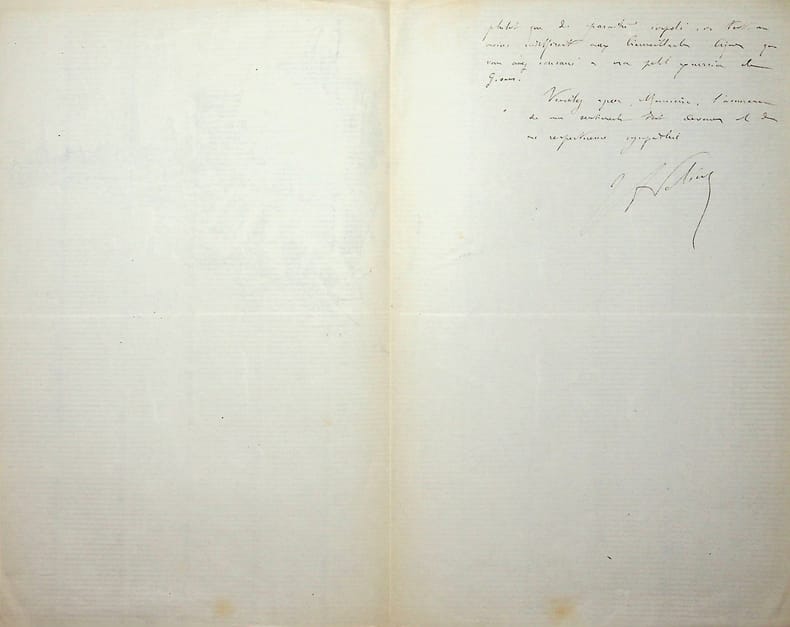 plutôt que de paraître impoli, ou tout au
moins indifférent aux bienveillantes lignes que
vous avez consacré à ma petite
Veuillez agréer, Monsieur, l'assurance
de mes sentiments très dévoués et de
ma respectueuse sympathie